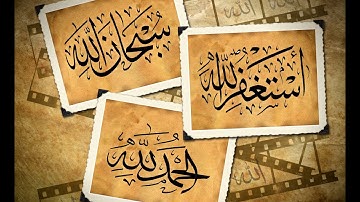 سُبْحَانَ اللَّه
أَسْتَغْفِرُ اللَّهَ
الْحَمْدُ لِلَّه